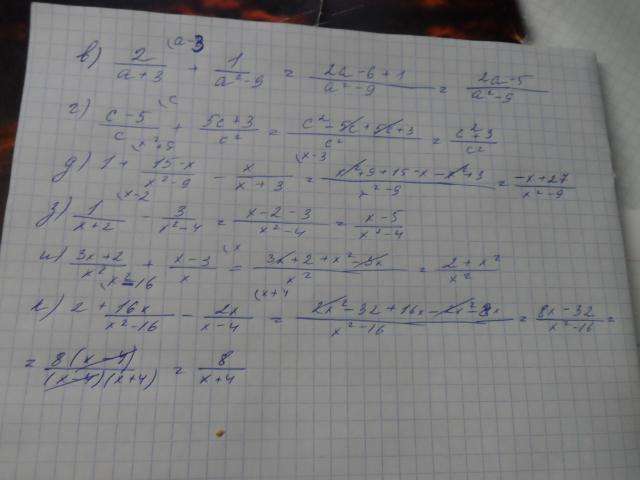 в) 2/(a+3) (a-3 + 1/(a²-9) = (2a-6+1)/(a²-9) = (2a-5)/(a²-9)
г) (c-5)/c (c + (5c+3)/c² = (c²-5c+5c+3)/c² = (c²+3)/c²
д) 1 (x²-9 + (15-x)/(x²-9) - x/(x+3) (x-3 = (x²+9+15-x-x²+3)/(x²-9) = (-x+27)/(x²-9)
з) 1/(x+2) (x-2 - 3/(x²-4) = (x-2-3)/(x²-4) = (x-5)/(x²-4)
и) (3x+2)/x² + (x-3)/x (x = (3x+2+x²-3x)/x² = (2+x²)/x²
к) 2 (x²-16 + 16x/(x²-16) - 2x/(x-4) (x+4 = (2x²-32+16x-2x²-8x)/(x²-16) = (8x-32)/(x²-16) =
= 8(x-4)/((x-4)(x+4)) = 8/(x+4)